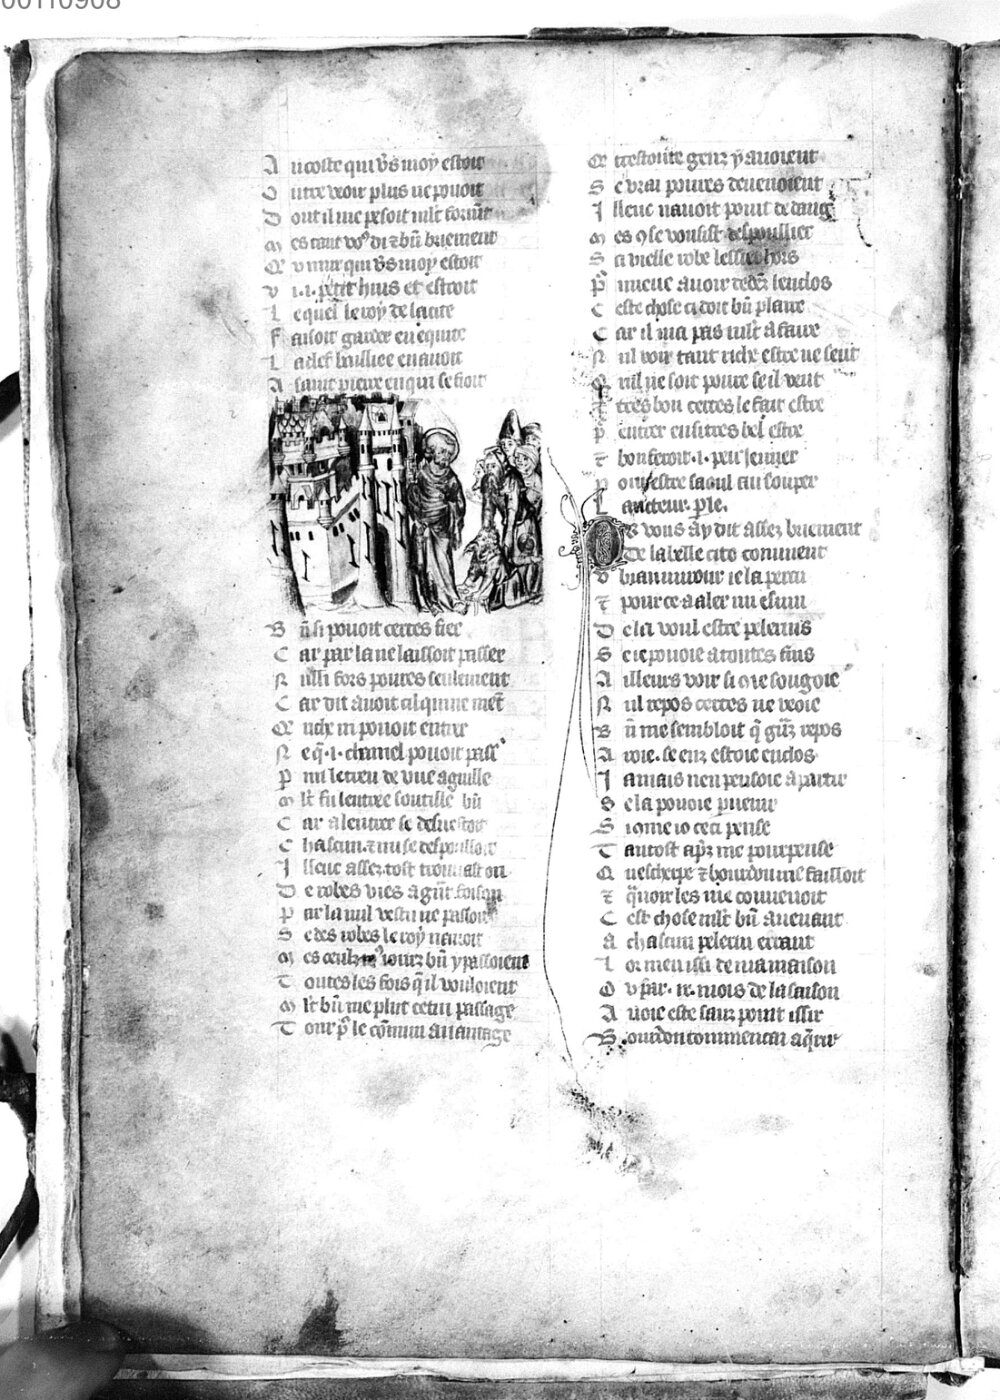 00110908
A ucoste qui v̾s moy estoit
O utre veoir plus ne pouoit
D ont il me pesoit ml̃t form̃t
M es tant vo⁹ di ⁊ bñ briement
Q͛ u mur qui v̾s moy estoit
V i .i. petit huis et estroit
L equel le roy de la cite
F aisoit garder en equite
L a clef baillee en auoit
A saint pierre en qui se fioit
B ñ si pouoit certes fier
C ar par la ne laissoit passer
N ulli fors poures seulement
C ar dit auoit cil qui ne ment
Q͛ riche ni pouoit entrer
N e q̃ .i. chamel pouoit pass͛
P mi le treu de vne aguille
M l̃t fu lentree soutille bñ
C ar a lentrer se desuestoit
C hascun ⁊ nu se despoulloit
I lleuc assez tost trouuast on
D e robes vies a gñt foison
P ar la nul vestu ne passoit
S e des robes le roy nauoit
M es ceulz
T outes les fois q̃ il vouloient
M l̃t bñ me plut cetui passage
T out p̃ le cõmun auantage
Q͛ trestoute genz y auoient
S e vrai poures deuenoient
I lleuc nauoit point de dang͛
M es ꝯ se vousist despoullier
S a vielle robe lessier hors
P̃ nueue auoir dedẽz lenclos
C este chose ci doit bñ plaire
C ar il ni a pas ml̃t a faire
N ul voir tant riche estre ne seut
Q nil ne soit poure se il veut
⁊ tres bon certes le fait estre
P̃ entrer en si tres bel estre
⁊ bon feroit .i. peu jeuner
P our estre saoul au souper
L aucteur ple.
O r vous ay dit assez briement
de la belle cite conment
V n mirour ie la percu
⁊ pour ce a aler mi esmu
D e la voul estre pelerins
S e ie pouoie a toutes fins
A illeurs voir si ꝯme songoie
N ul repos certes ne veoie
B ñ me sembloit q̃ gñz repos
A roie se enz estoie enclos
I amais nen pensoie a partir
S e la pouoie puenir
S i ꝯme io ceci pense
T antost apr̃z me pourpense
Q uescherpe ⁊ bourdon me failloit
⁊ q̃uoir les me conuenoit
C est chose ml̃t bñ auenant
A chascun pelerin errant
L ors men issi de ma maison
O v par .ix. mois de la saison
A uoie este sanz point issir
B ourdon commencai aq̃rir